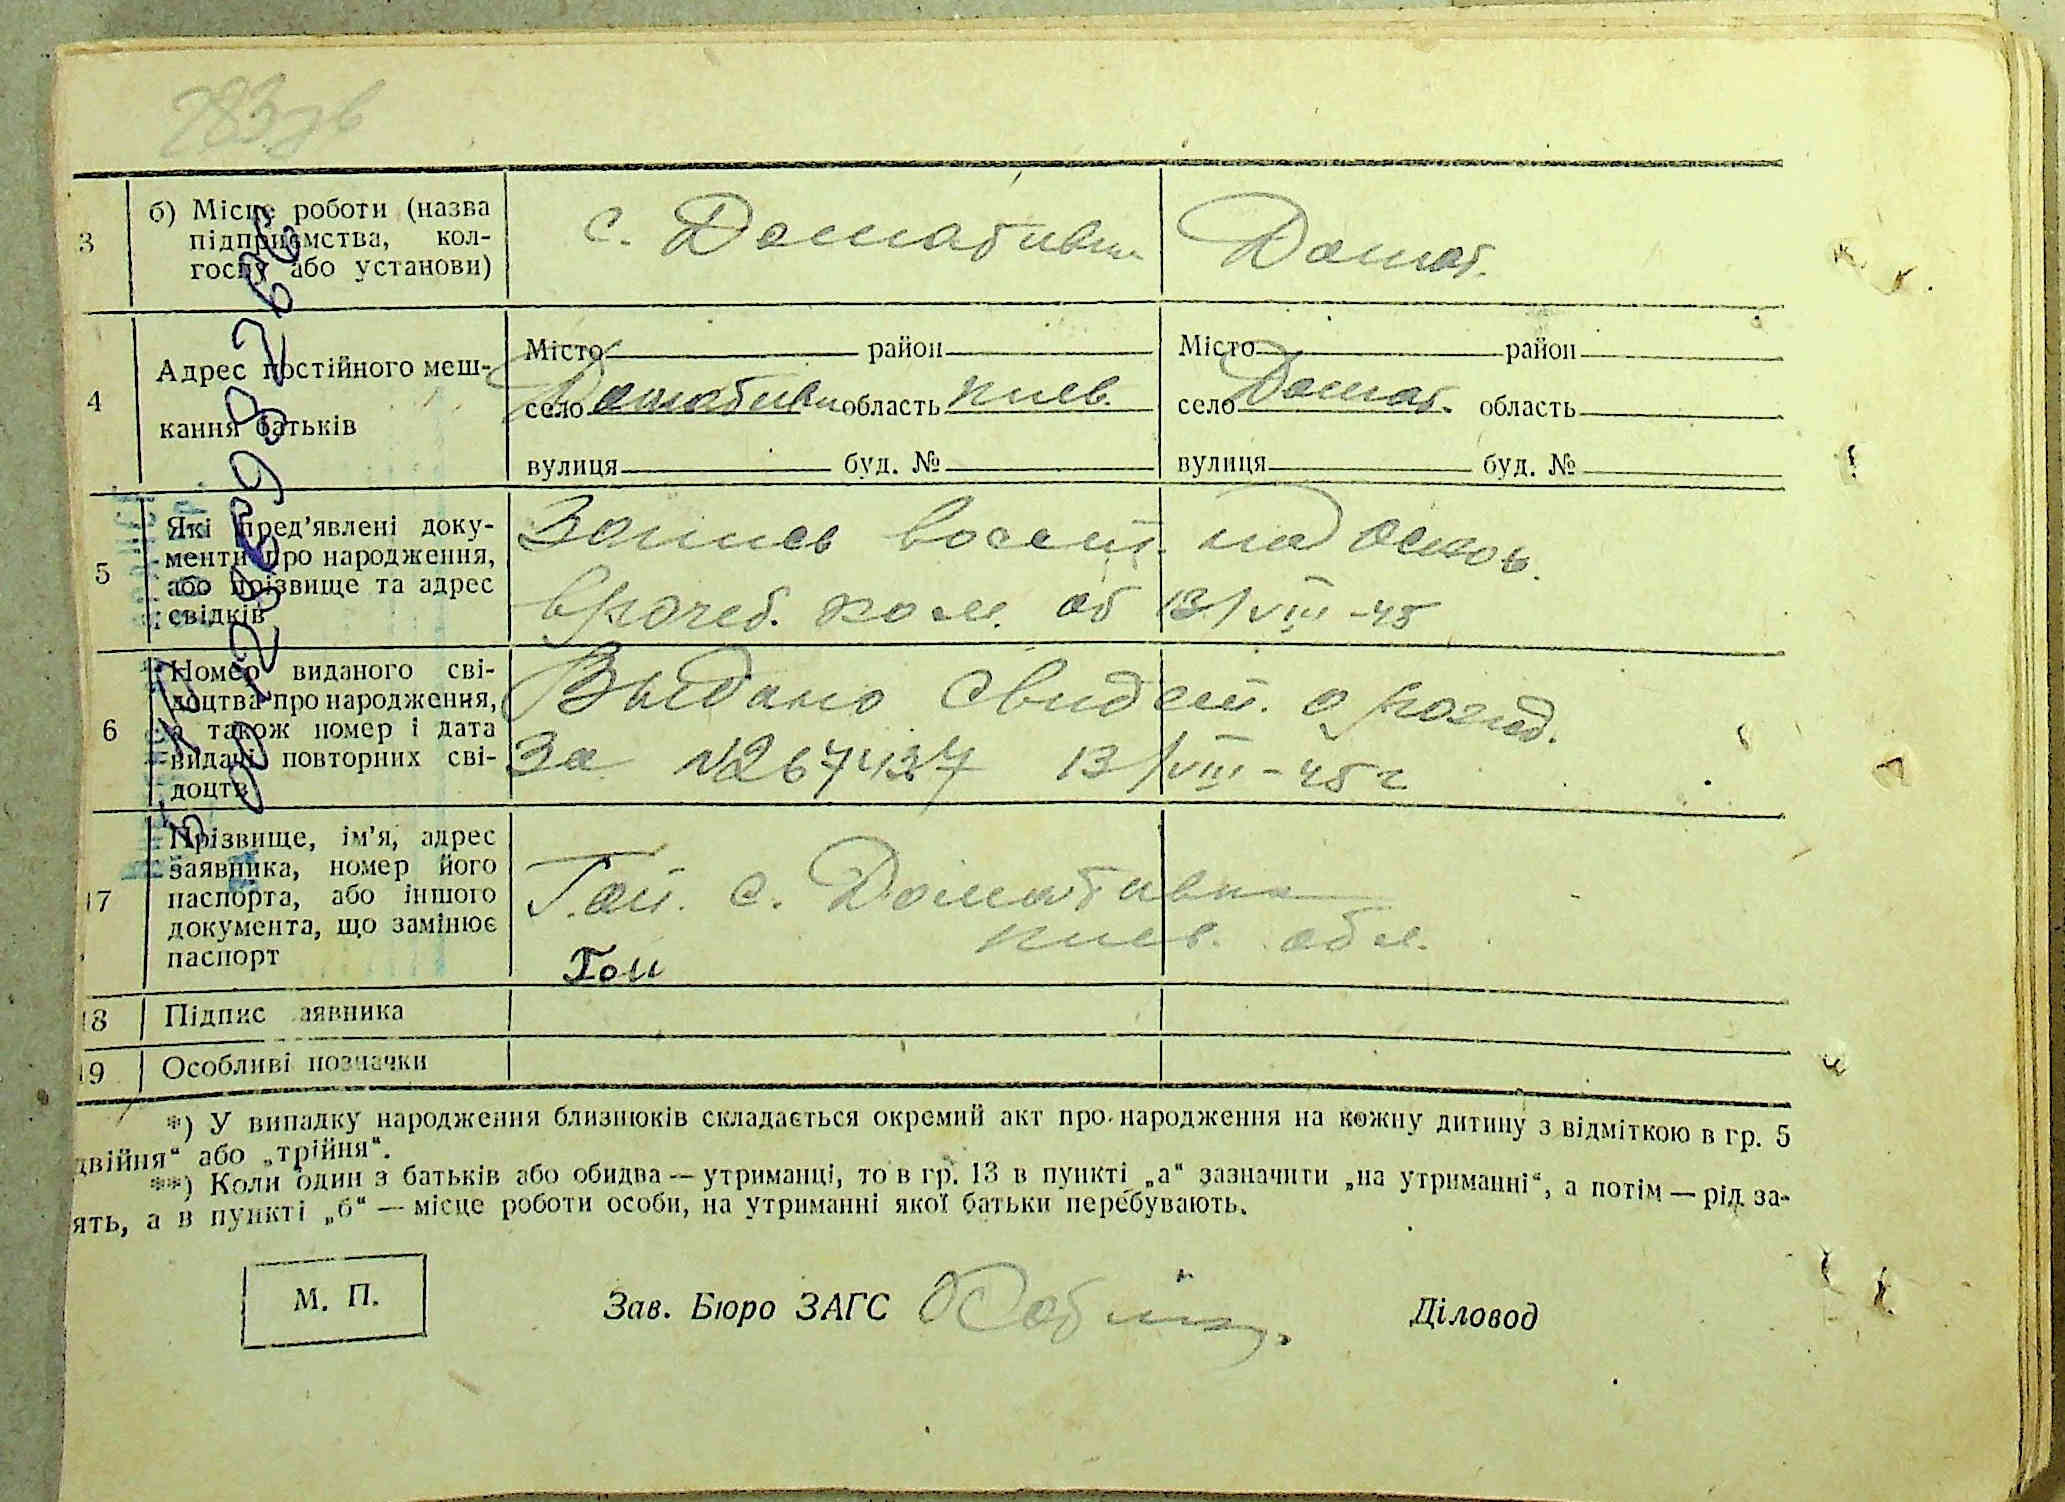 283 зв
3
б) Місце роботи (назва
підприємства, кол-
госпу або установи)
с. Домативка
Домат.
4
Адрес постійного меш-
кання батьків
Місто район
село область киев.
вулиця буд. №
Місто район
село Домат. область
вулиця буд. №
5
Які пред’явлені доку-
менти про народження,
або прізвище та адрес
свідків
Запись восст. на основ.
врачеб. ком. от 13/VIII-45
6
Номер виданого сві-
доцтва про народження,
а також номер і дата
видачі повторних сві-
доцтв
Выдано свидет. о рожд.
За 13/VIII-45 г
17
Прізвище, ім’я, адрес
заявника, номер його
паспорта, або іншого
документа, що замінює
паспорт
Гай. с. Домативка
киев. обл.
Гай
18
Підпис аявника
19
Особливі позначки
*) У випадку народження близнюків складається окремий акт про народження на кожну дитину з відміткою в гр. 5
двійня“ або „трійня“.
**) Коли один з батьків або обидва — утриманці, то в гр. 13 в пункті „а“ зазначити „на утриманні“, а потім — рід за-
ять, а в пункті „б“ — місце роботи особи, на утриманні якої батьки перебувають.
М. П.
Зав. Бюро ЗАГС
Діловод